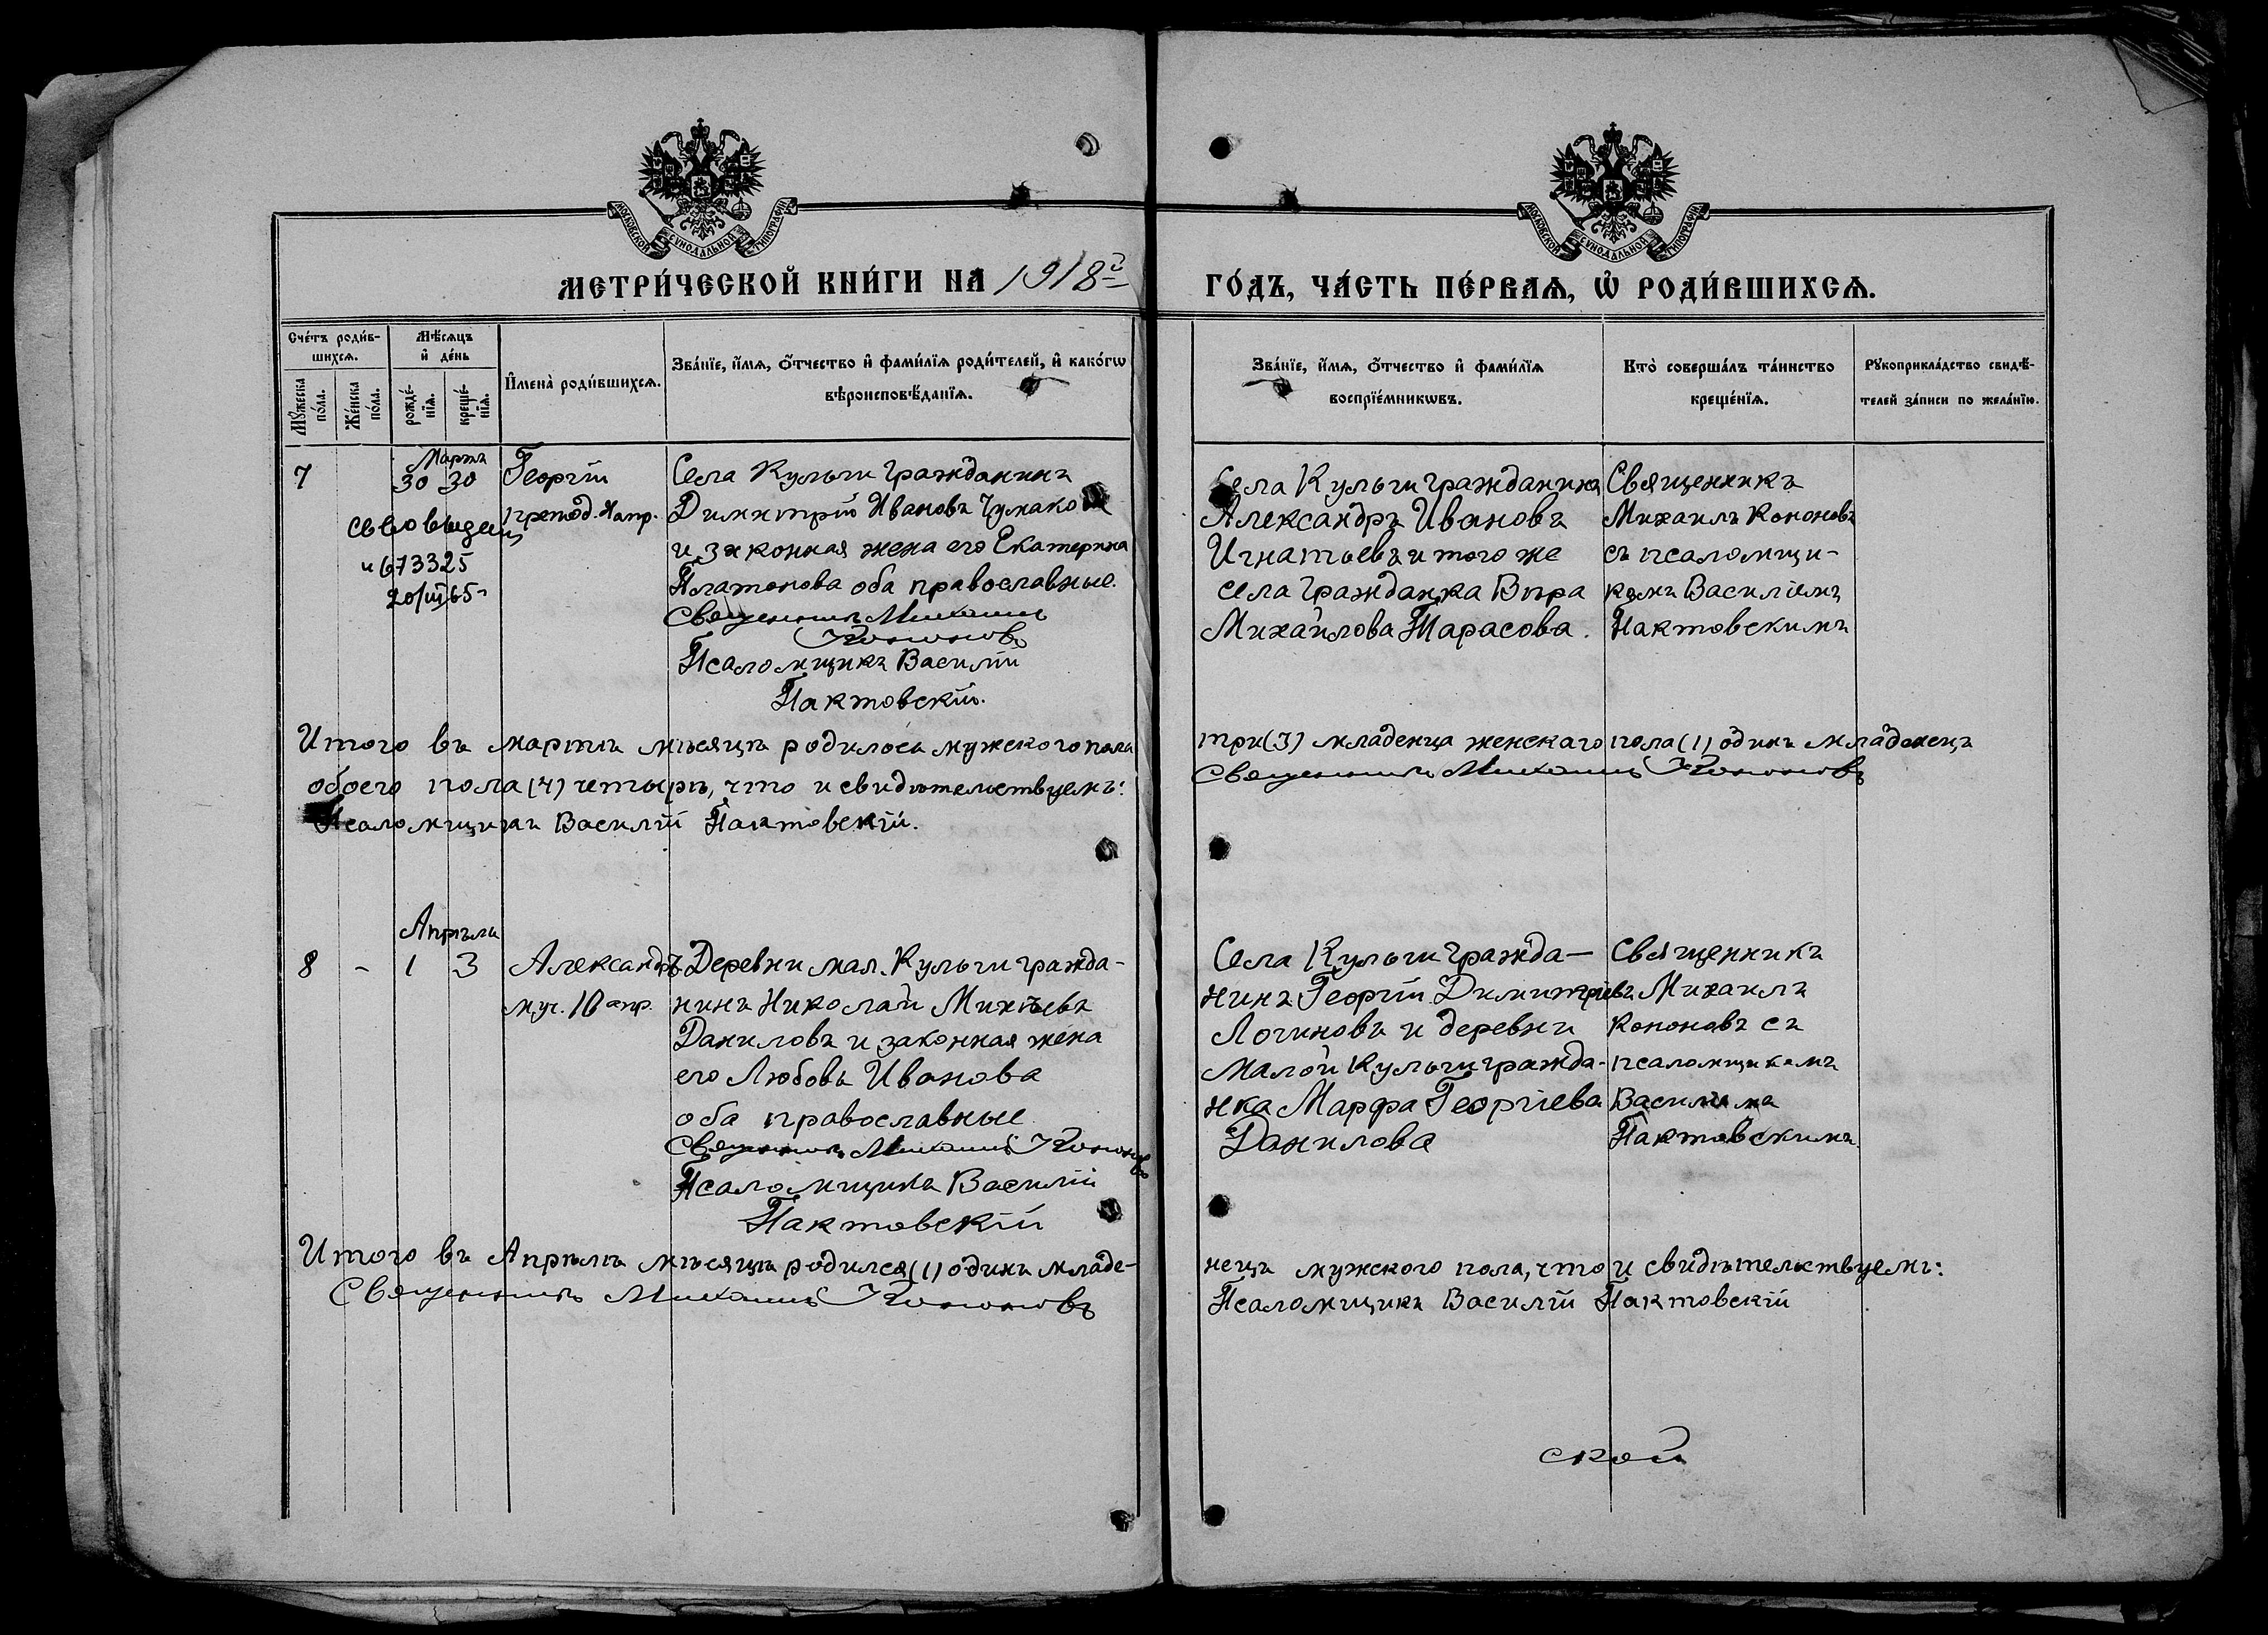 МОСКОВСКОЙ СѴНОДАЛЬНОЙ ТИПОГРАФІИ
МОСКОВСКОЙ СѴНОДАЛЬНОЙ ТИПОГРАФІИ
МЕТРИ́ЧЕСКОЙ КНИ́ГИ НА 1918й
ГО́ДЪ, ЧА́СТЬ ПЕ́РВАѦ, Ѡ҆ РОДИ́ВШИХСѦ.
Сче́тъ роди́в-
шихсѧ.
Мѣ́сѧцъ
и҆ де́нь
И҆мена̀ роди́вшихсѧ.
Зва́нїе, и҆́мѧ, ѻ҆́тчество и҆ фами́лїѧ роди́телей, и҆ како́гѡ
вѣроисповѣ́данїѧ.
Мꙋ́жеска
по́ла.
Же́нска
по́ла.
рожде́-
нїѧ.
креще́-
нїѧ.
Зва́нїе, и҆́мѧ, ѻ҆́тчество и҆ фами́лїѧ
воспрїе́мникѡвъ.
Кто̀ соверша́лъ та́инство
креще́нїѧ.
Рꙋкоприкла́дство свидѣ́-
телей за́писи по жела́нїю.
Марта
7 30 30 Георгій
препод. 4 апр.
Св-во выдан
и 673325
20/III 65-
Села Кульги гражданинъ
Димитрій Ивановъ Чумако
и законная жена его Екатерина
Платонова оба православные.
Священникъ Михаилъ
Кононовъ
Псаломщикъ Василій
Пактовскій.
Села Кульги гражданинъ
Александръ Ивановъ
Игнатьевъ и того же
села гражданка Вѣра
Михайлова Тарасова.
Священникъ
Михаилъ Кононовъ
съ псаломщи-
комъ Василіемъ
Пактовскимъ
Итого въ мартѣ мѣсяцѣ родилось мужского пола три (3) младенца женскаго пола (1) одинъ младенецъ
обоего пола (4) четырѣ, что и свидѣтельствуемъ: Священникъ Михаилъ Кононовъ
Псаломщикъ Василій Пактовскій.
Апрѣля
8 - 1 3 Александръ
муч. 10 апр.
Деревни мал. Кульги гражда-
нинъ Николай Михѣевъ
Даниловъ и законная жена
его Любовь Иванова
оба православные
Священникъ Михаилъ Кононовъ
Псаломщикъ Василій
Пактовскій
Села Кульги гражда-
нинъ Георгій Димитріевъ
Логиновъ и деревни
Малой Кульги гражда-
нка Марфа Георгіева
Данилова
Священникъ
Михаилъ
Кононовъ съ
псаломщикомъ
Василіемъ
Пактовскимъ
Итого въ Апрѣлѣ мѣсяцѣ родился (1) одинъ младе-
нецъ мужского пола, что и свидѣтельствуемъ:
Священникъ Михаилъ Кононовъ
Псаломщикъ Василій Пактовскій
ской